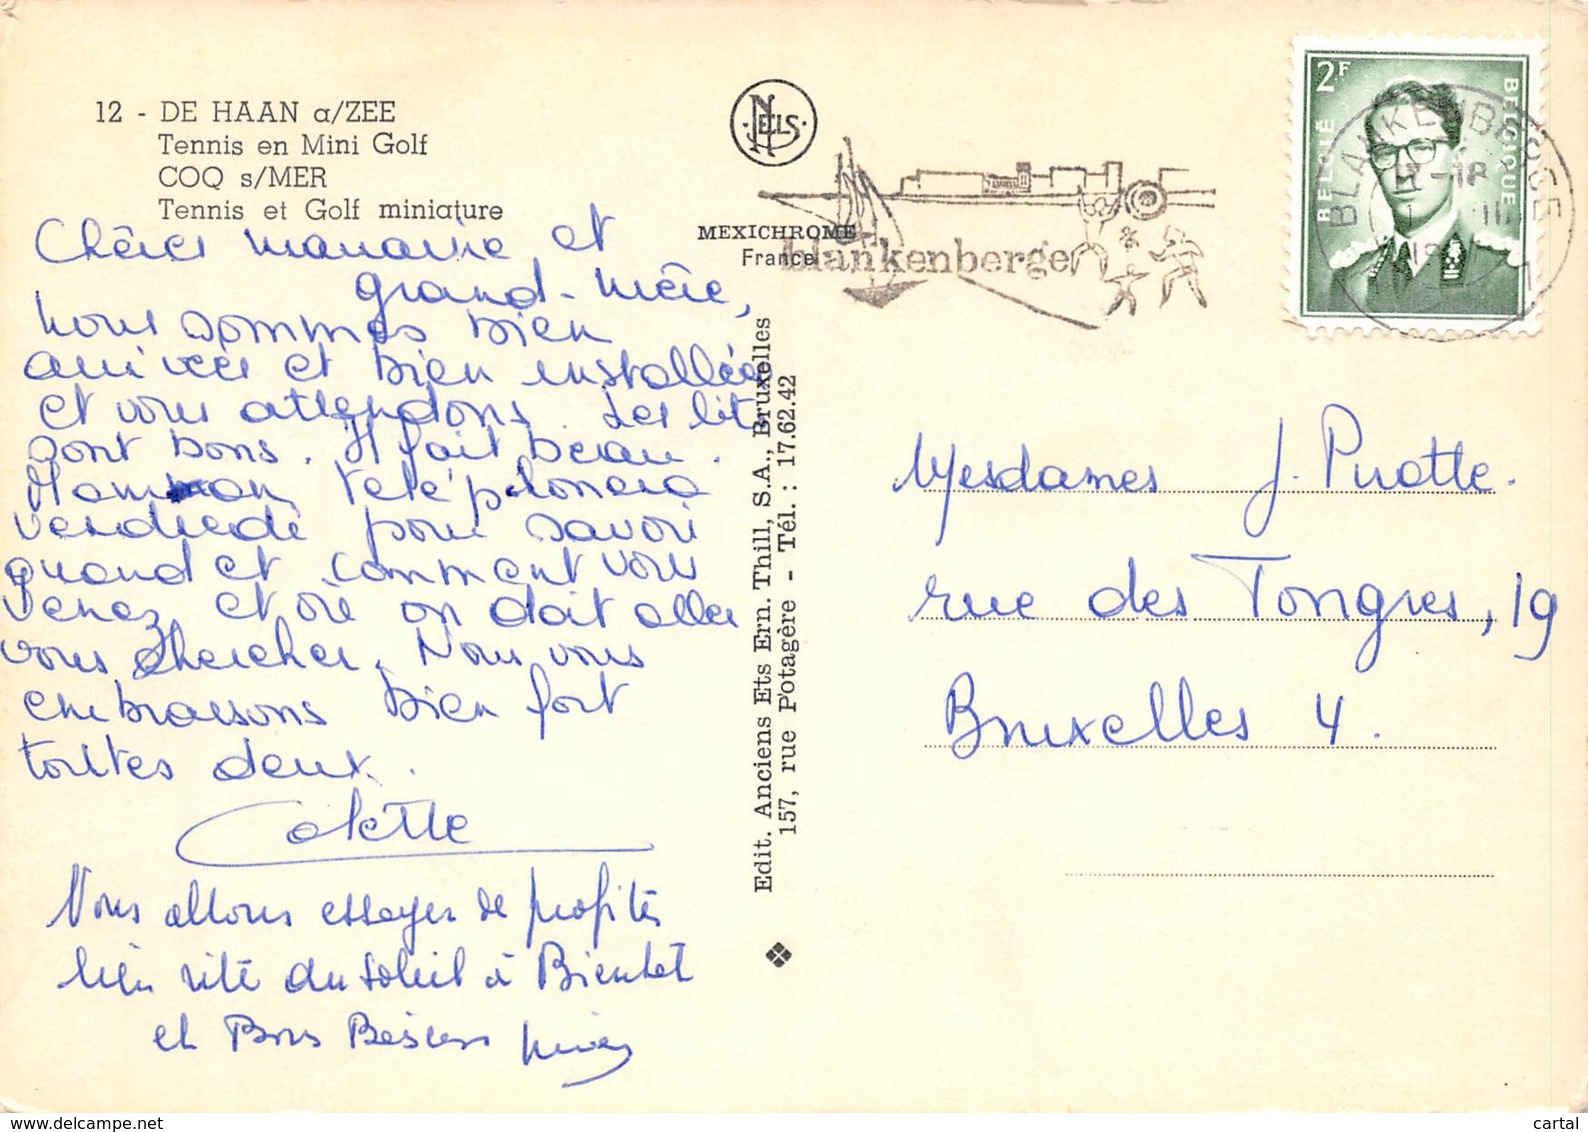 12 - DE HAAN a/ZEE
Tennis en Mini Golf
COQ s/MER
Tennis et Golf miniature
Chères marraine et
grand-mère,
nous sommes bien
arrivées et bien installées
et vous attendons. Les lits
sont bons. Il fait beau.
Maman téléphonera
vendredi pour savoir
quand et comment vous
venez et où on doit aller
vous chercher. Nous vous
embrassons bien fort
toutes deux.
Colette
Nous allons essayer de profiter
bien vite du soleil à Bientot
et Bons Baisers
NELS
MEXICHROME
France
Edit. Anciens Ets Ern. Thill, S.A., Bruxelles
157, rue Potagère - Tél. : 17.62.42
blankenberge
2F
BELGIË BELGIQUE
BLANKENBERGE
Mesdames J. Piotte.
rue des Tongres, 19
Bruxelles 4.
www.delcampe.net
cartal